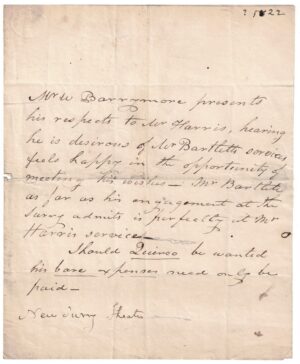 ? 1822
Mr W Barrymore presents
his respects to Mr Harris, hearing
he is desirous of Mr Bartletts services
feels happy in the opportunity of
meeting his wishes – Mr Bartlett
as far as his engagement at the
Surry admits is perfectly at Mr
Harris services –
Should be wanted
his bare expenses need only be
paid –
New Surry Theatre